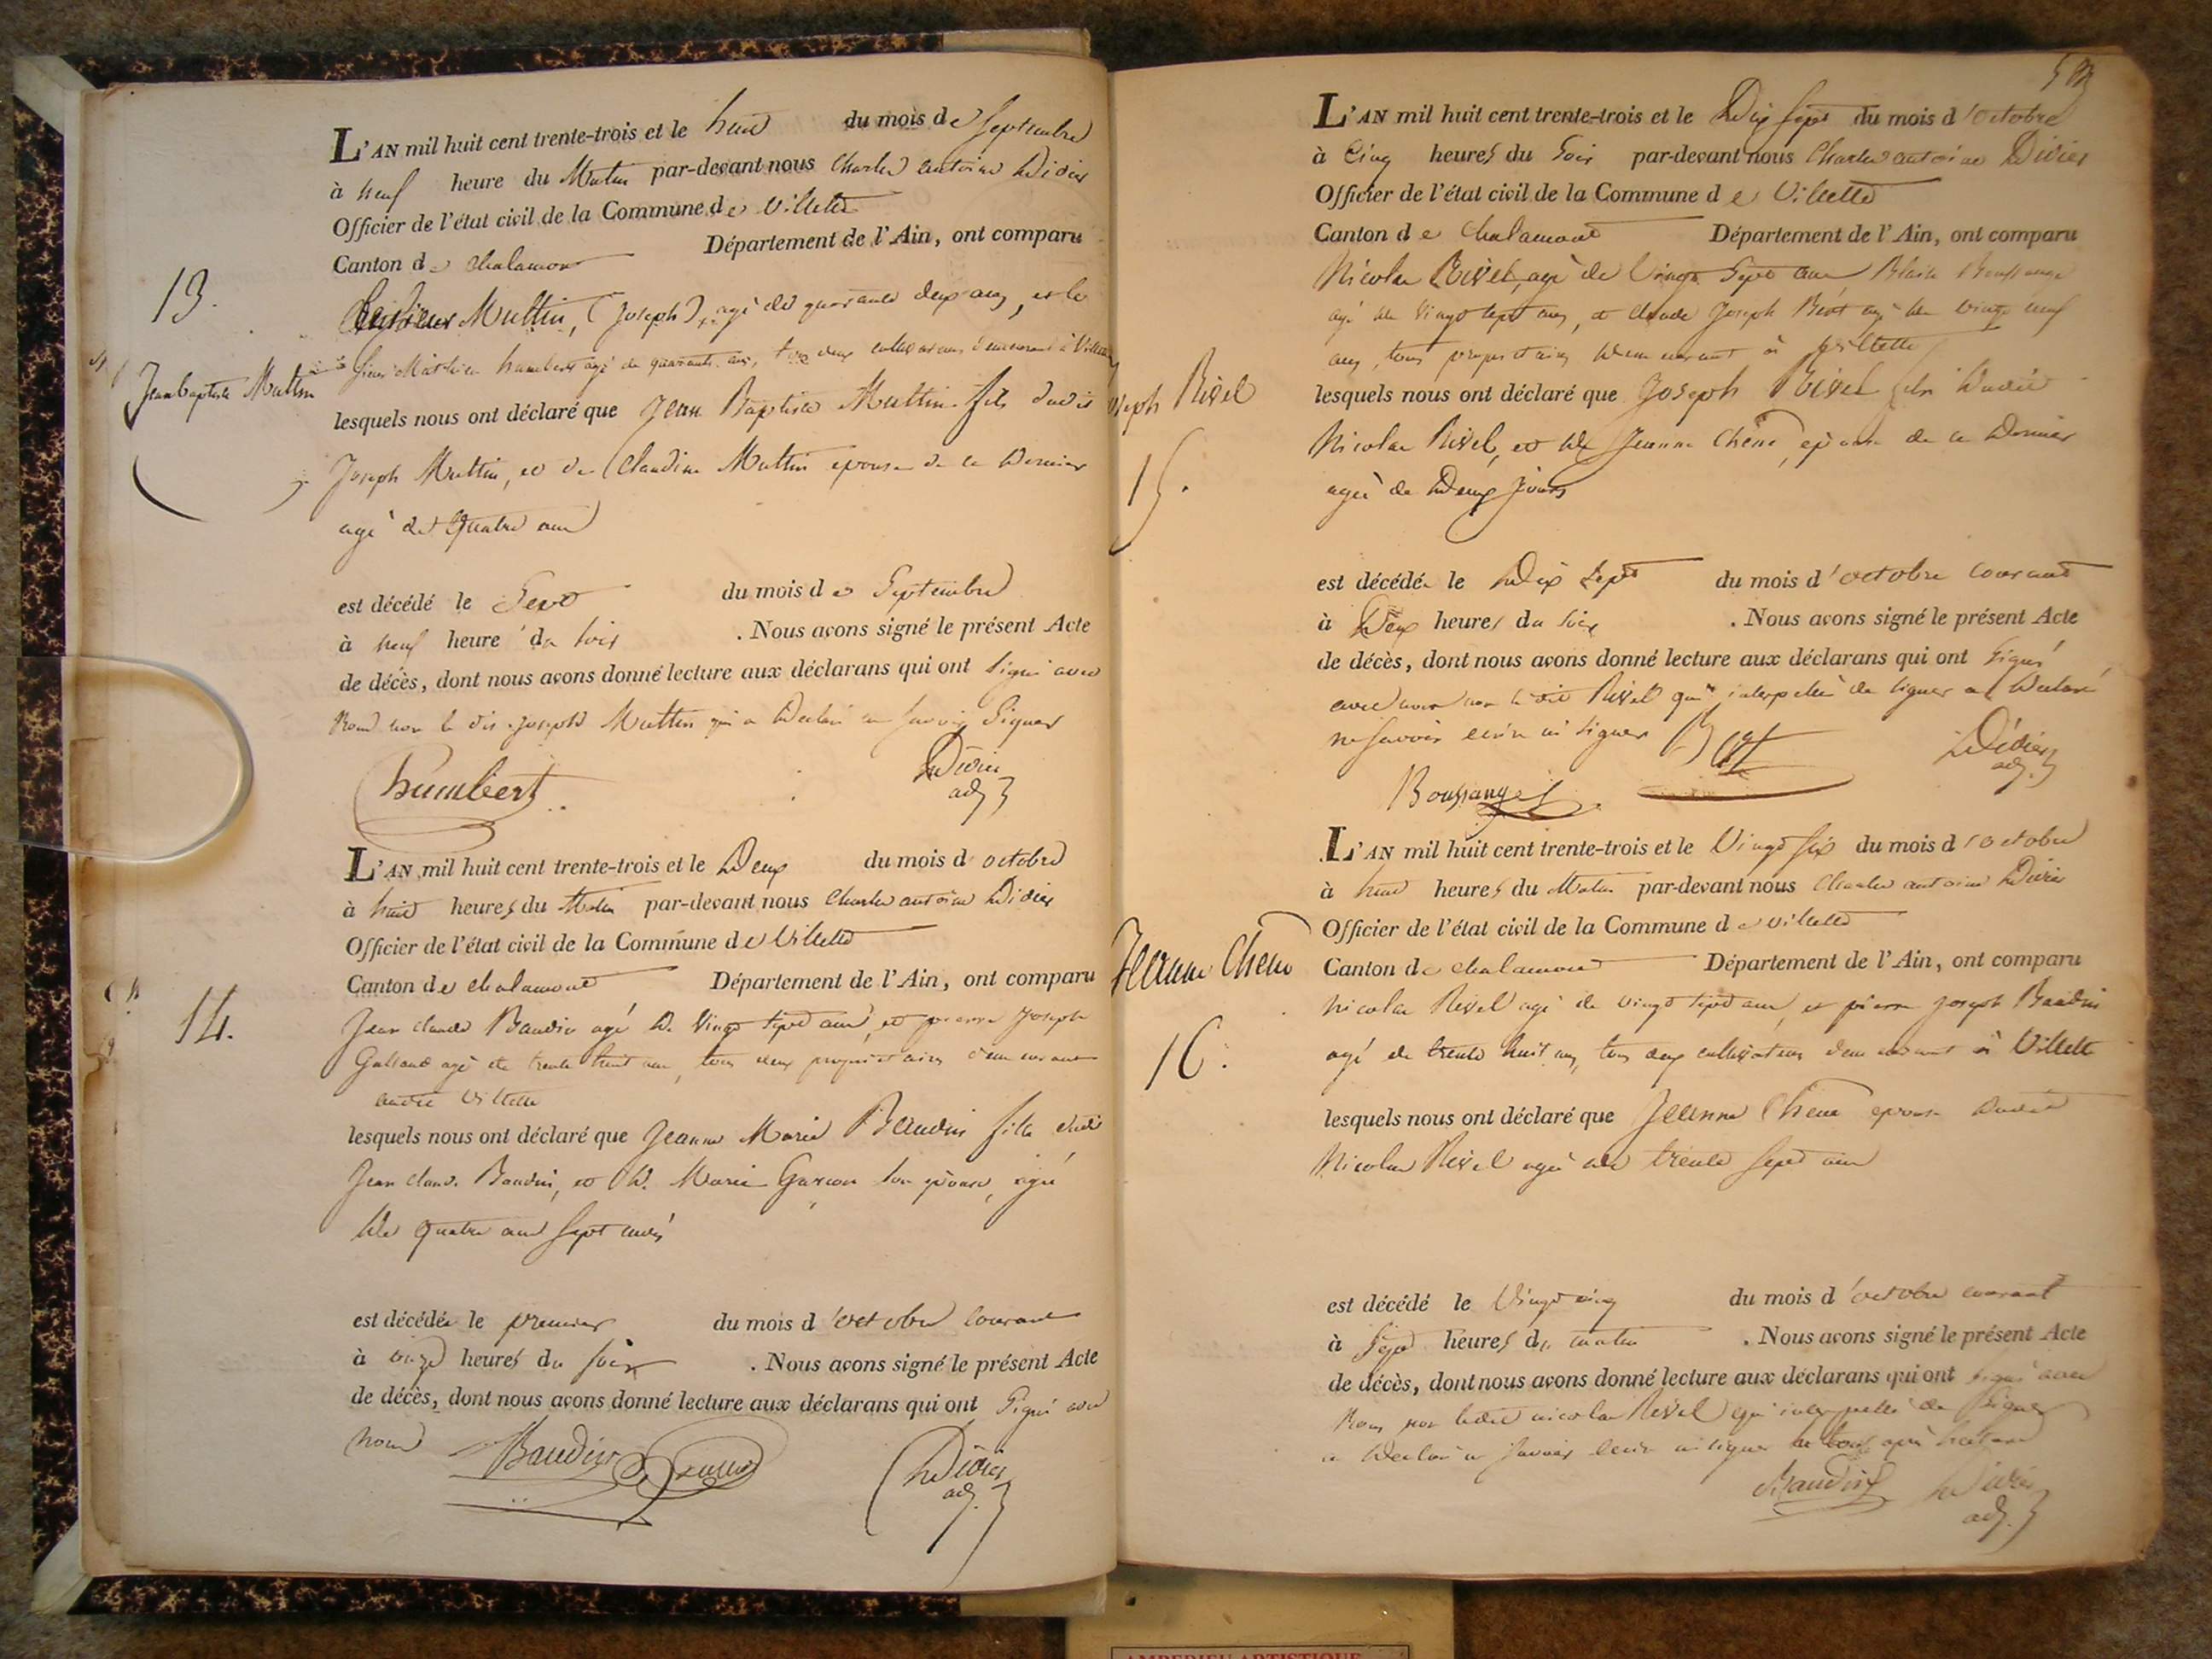 L'AN mil huit cent trente-trois et le huit du mois de Septembre
à neuf heure du Matin par-devant nous Charles antoine Didier
Officier de l'état civil de la Commune de Villette
Canton de chalamont Département de l'Ain, ont comparu
13.
Multin, (Joseph), agé de quarante deux ans, et le
Sieur Mathieu humbert agé de quarante ans, tous deux cultivateurs demeurant à Villette
Jean baptiste Multin
lesquels nous ont déclaré que Jean Baptiste Multin fils dudit
Joseph Multin, et de Claudine Multin epouse de ce Dernier
agé de Quatre ans
est décédé le Sept du mois de Septembre
à neuf heure du soir . Nous avons signé le présent Acte
de décès, dont nous avons donné lecture aux déclarans qui ont signé avec
Nous non le dit Joseph Multin qui a Declaré ne savoir Signer
humbert Didier
adj.
L'AN mil huit cent trente-trois et le Deux du mois d'octobre
à huit heures du Matin par-devant nous Charles antoine Didier
Officier de l'état civil de la Commune de Villette
Canton de chalamont Département de l'Ain, ont comparu
14.
Jean Claude Baudin agé De Vingt Sept ans, et pierre Joseph
agé de trente huit ans, tous deux propriétaires demeurant
audit Villette
lesquels nous ont déclaré que Jeanne Marie Baudin fille dudit
Jean Claud. Baudin, et De Marie Garcon son épouse, agée
De quatre ans sept mois
est décédée le premier du mois d'octobre courant
à onze heures du soir . Nous avons signé le présent Acte
de décès, dont nous avons donné lecture aux déclarans qui ont Signé avec
nous Baudin Didier
adj.
L'AN mil huit cent trente-trois et le Dix sept du mois d'octobre
à Cinq heures du Soir par-devant nous Charles antoine Didier
Officier de l'état civil de la Commune de Villette
Canton de Chalamont Département de l'Ain, ont comparu
Nicolas Rivel, agé de Vingt Sept ans Blaise Boussange
agé de Vingt sept ans, et claude Joseph agé de vingt neuf
ans, tous propriétaires Demeurant à Villette
Joseph Rivel
lesquels nous ont déclaré que Joseph Rivel fils Dudit
Nicolas Rivel, et de Jeanne Chêne, épouse de ce Dernier
15.
agé de Deux Jours
est décédé le Dix Sept du mois d'octobre courant
à Deux heures du soir . Nous avons signé le présent Acte
de décès, dont nous avons donné lecture aux déclarans qui ont Signé
avec nous non le dit Rivel qui interpellé de signer a Declaré
ne savoir écrire ni signer Didier
adj.
Boussange
L'AN mil huit cent trente-trois et le Vingt six du mois d'octobre
à huit heures du Matin par-devant nous Charles antoine Didier
Officier de l'état civil de la Commune de Villette
Jeanne Chene
Canton de chalamont Département de l'Ain, ont comparu
nicolas Rivel agé de vingt sept ans, et pierre Joseph Baudin
16.
agé de trente huit ans, tous deux cultivateurs demeurant à Villette
lesquels nous ont déclaré que Jeanne Chene epouse Dudit
Nicolas Rivel agée de trente sept ans
est décédé le Vingt cinq du mois d'octobre courant
à Sept heures du matin . Nous avons signé le présent Acte
de décès, dont nous avons donné lecture aux déclarans qui ont signé avec
Nous non ledit nicolas Rivel qui interpellé de Signer
a Declaré ne savoir écrire ni signer
Baudin Didier
adj.
AMBERIEU ARTISTIQUE